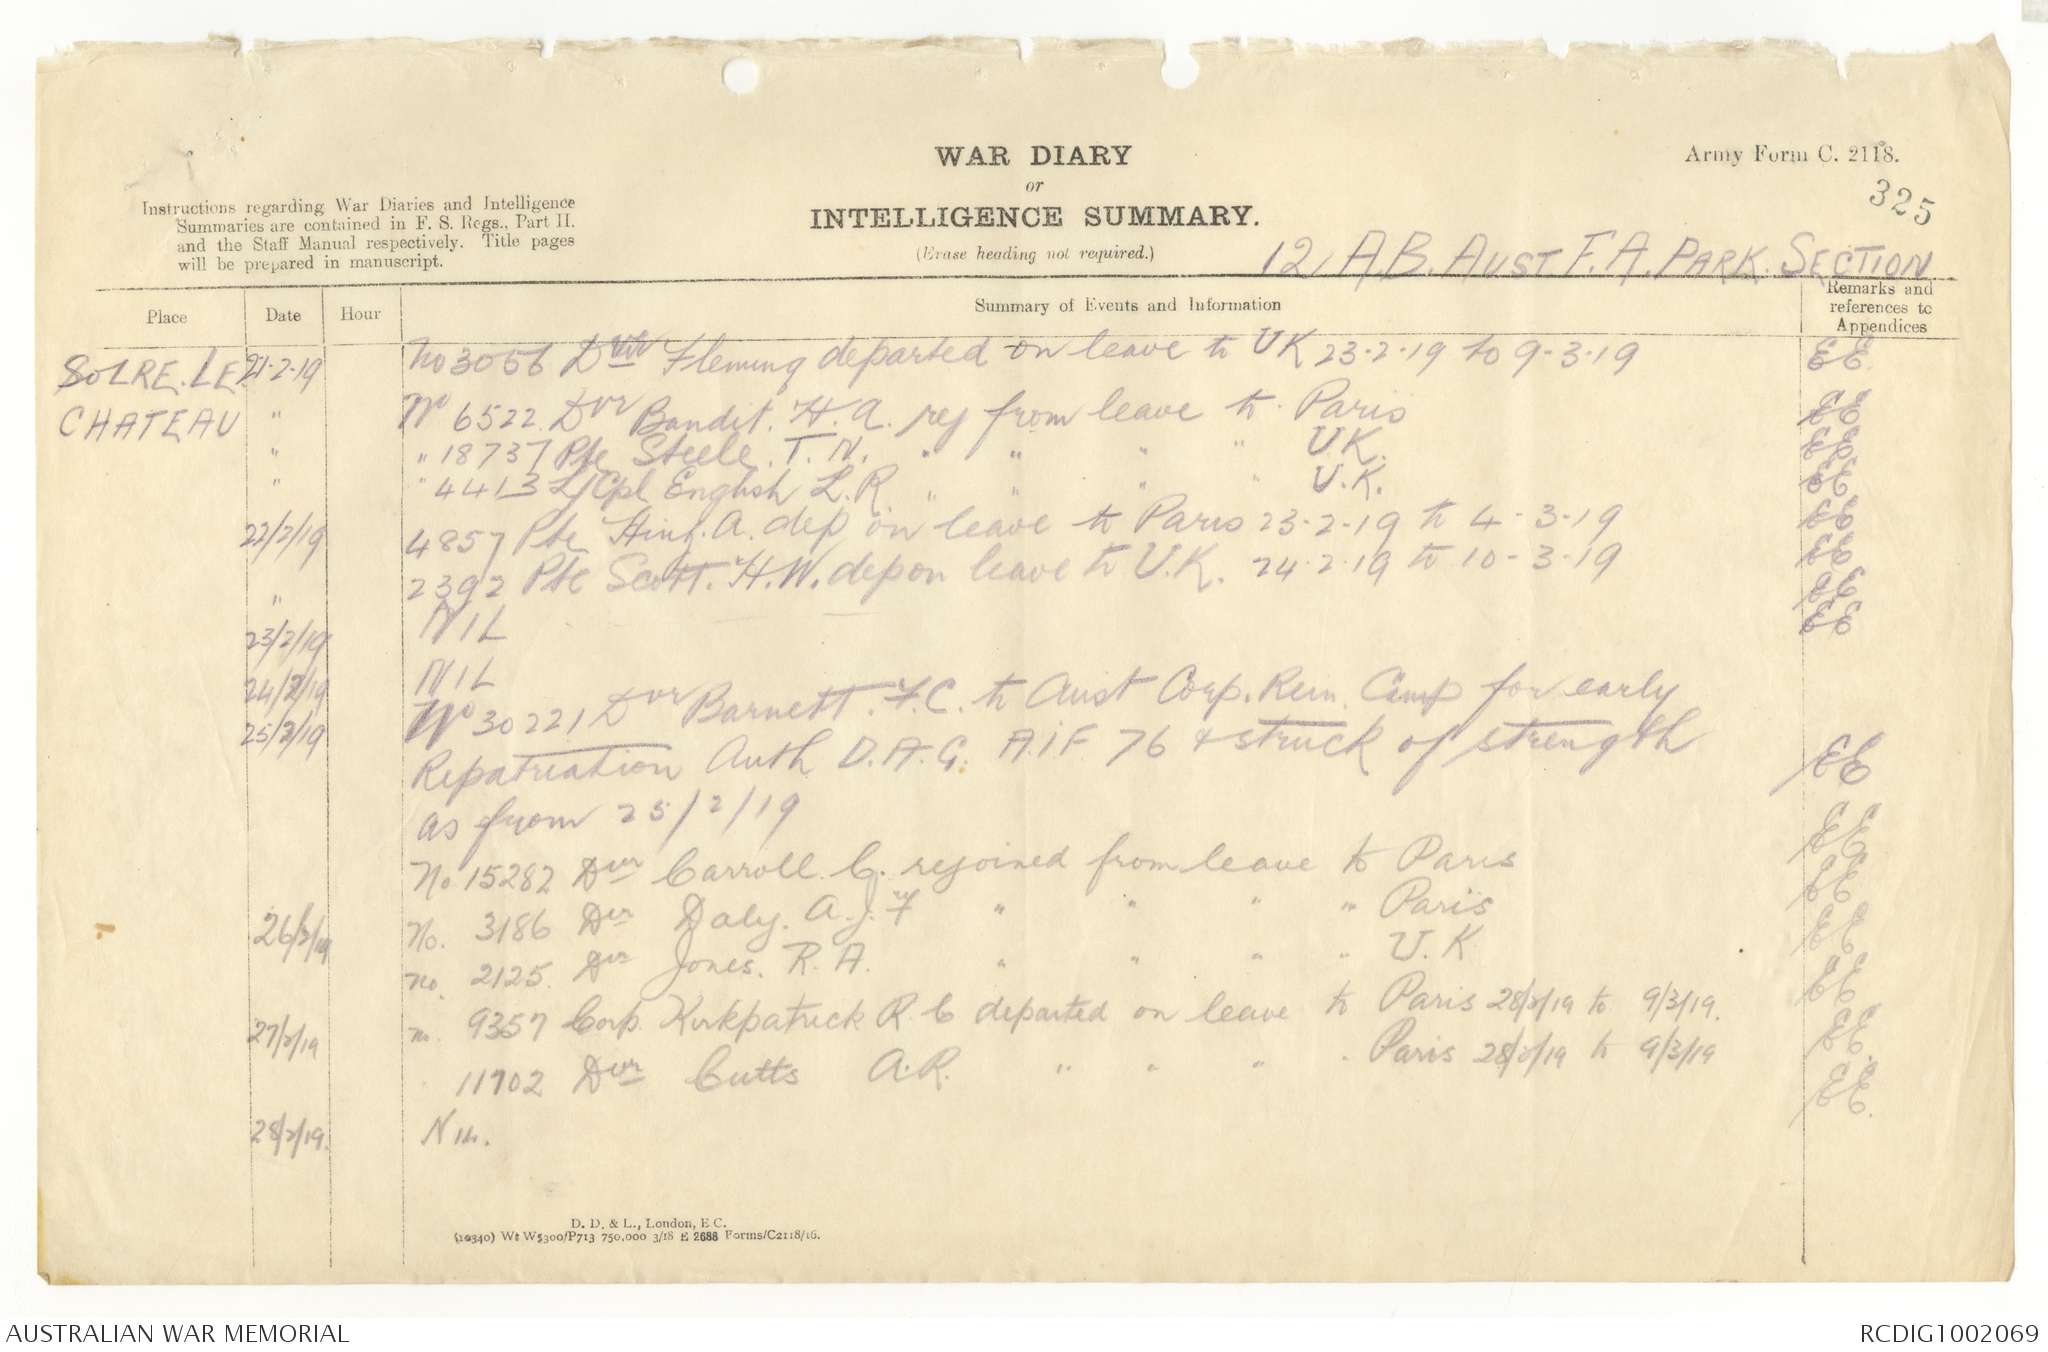 WAR DIARY
or
INTELLIGENCE SUMMARY.
(Erase heading not required.)
Army Form C. 2118.
325
Instructions regarding War Diaries and Intelligence
Summaries are contained in F. S. Regs., Part II.
and the Staff Manual respectively. Title pages
will be prepared in manuscript.
12 A.B. AUST F.A. PARK. SECTION
Place Date Hour Summary of Events and Information Remarks and references to Appendices
SOLRE. LE 21-2-19 No 3056 Dvr Fleming departed on leave to UK 23-2-19 to 9-3-19 EE
CHATEAU " No 6522 Dvr Bandit. H. A. rej from leave to Paris EE
" " 18737 Pte Steele. T. N. " " " " U.K. EE
" " 4413 L/Cpl English L. R " " " " U.K. EE
22/2/19 4857 Pte A. dep on leave to Paris 23-2-19 to 4-3-19 EE
" 2392 Pte Scott. H. W. dep on leave to U.K. 24-2-19 to 10-3-19 EE
23/2/19 NIL EE
24/2/19 NIL EE
25/2/19 No 30221 Dvr Barnett. F. C. to Aust Corp. Rein. Camp for early
Repatriation Auth D.A.G. A.I.F 76 & struck of strength EE
as from 25/2/19
No 15282 Dvr Carroll. C. rejoined from leave to Paris EE
26/2/19 No. 3186 Dvr Daly. A. J. F " " " " Paris EE
No. 2125. Dvr Jones. R. A. " " " " U.K EE
27/2/19 No 9357 Corp. Kirkpatrick R. C departed on leave to Paris 28/2/19 to 9/3/19. EE
11702 Dvr Cutts A. R. " " " " Paris 28/2/19 to 9/3/19 EE.
28/2/19. Nil. EE.
D. D. & L., London, E.C.
(10340) Wt W5300/P713 750,000 3/18 E 2688 Forms/C2118/16.
AUSTRALIAN WAR MEMORIAL
RCDIG1002069